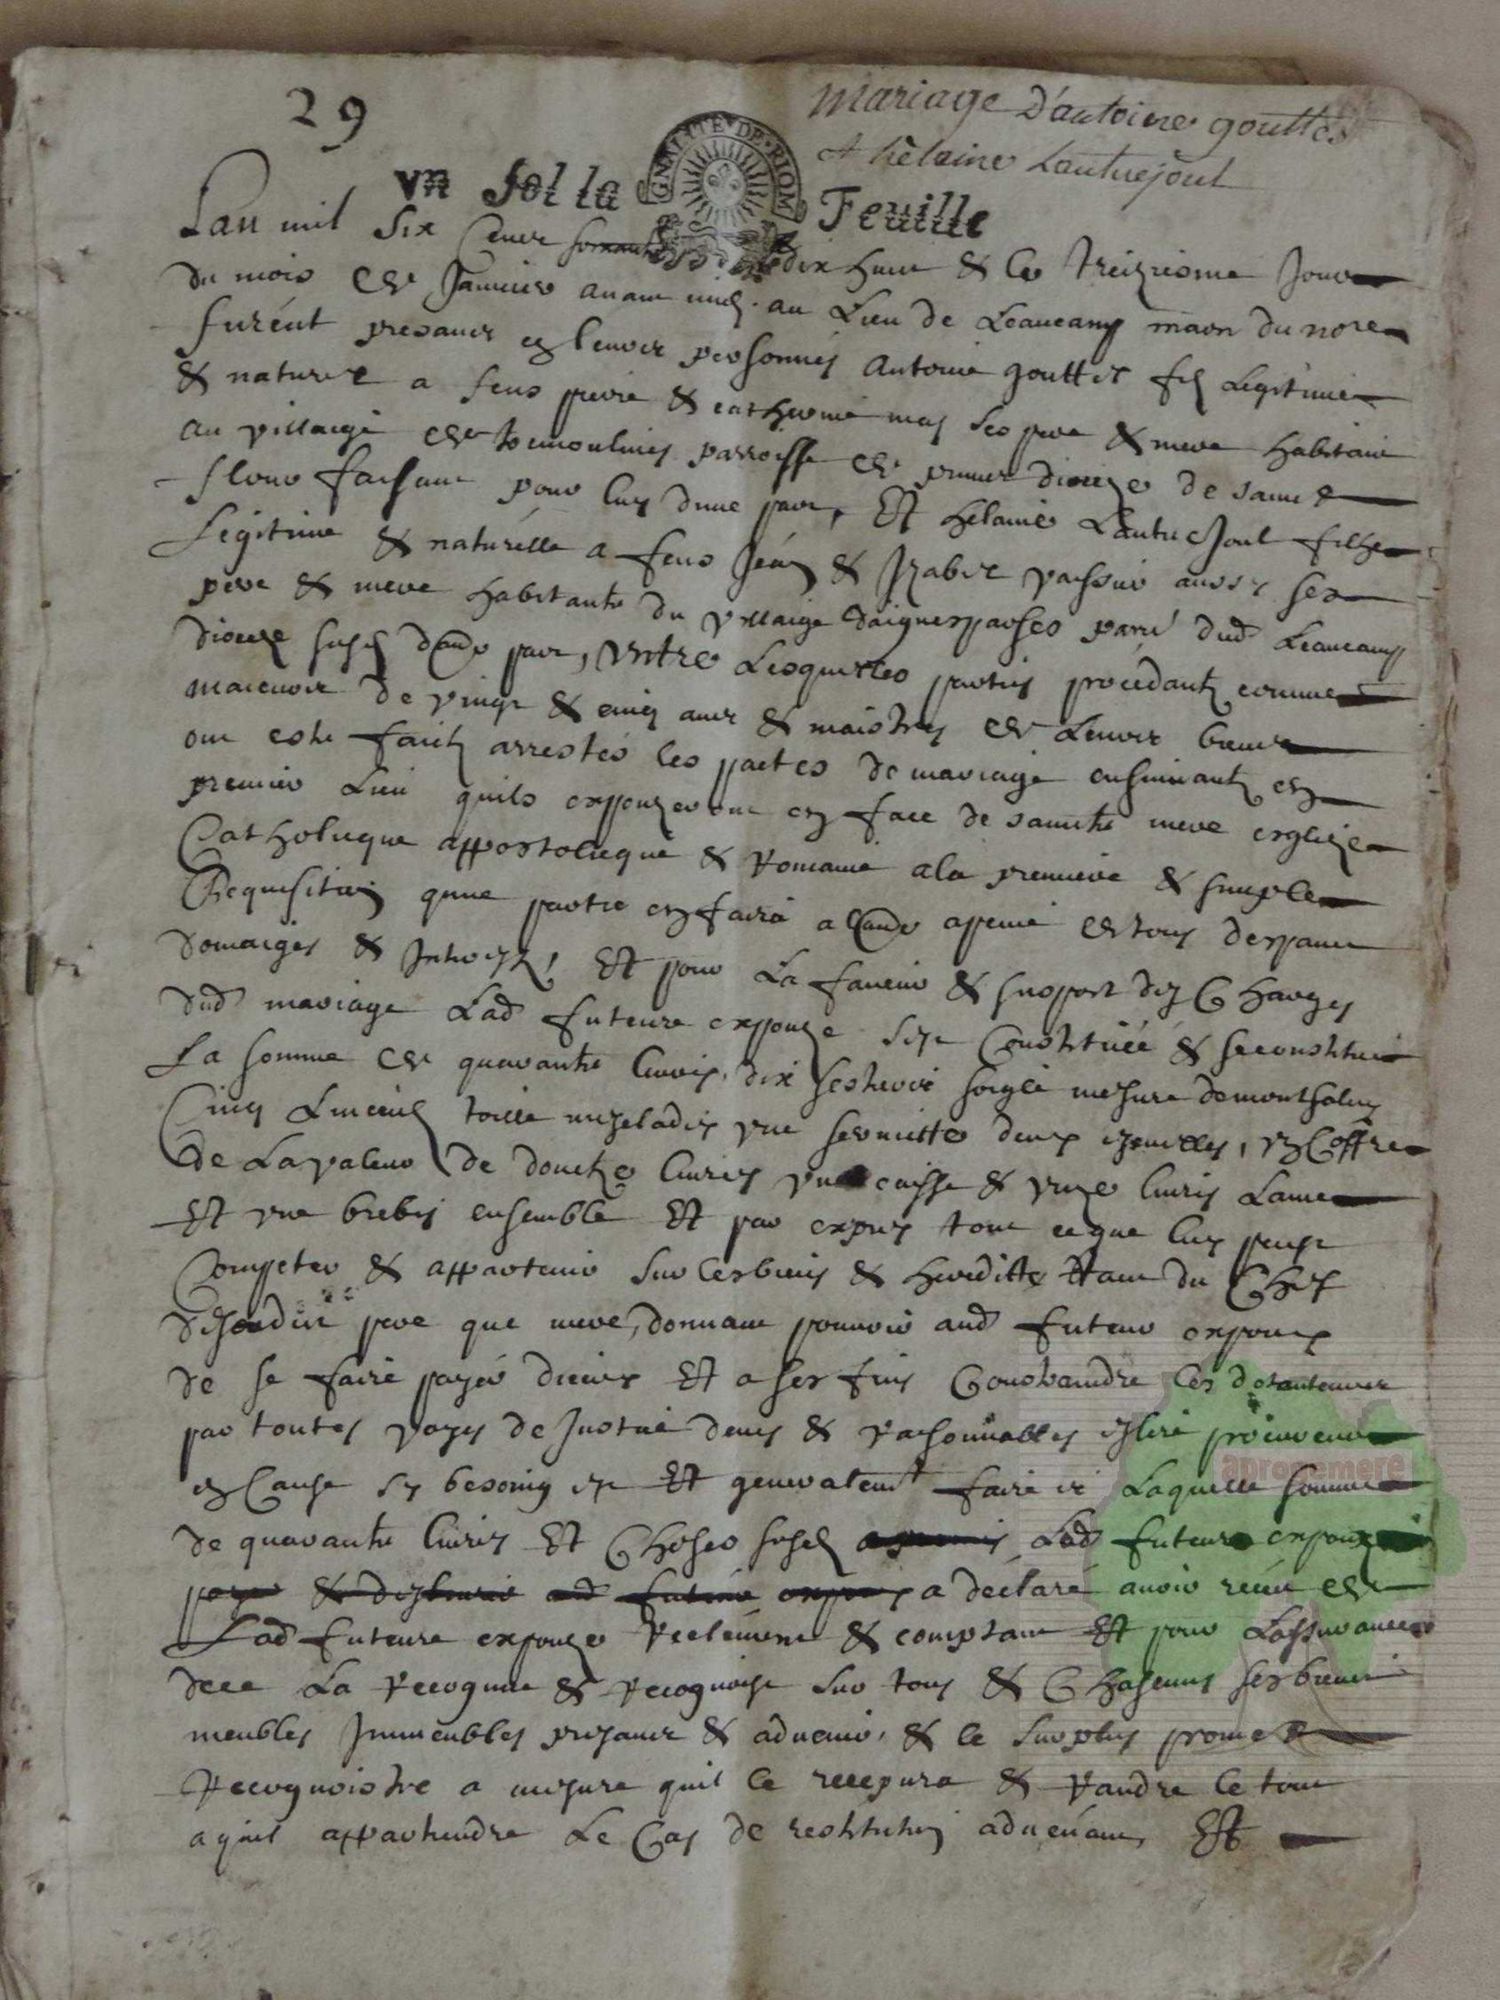 29
Mariage d'antoine gouttes
et hélaine Lautrejoul
vn sol la Feuille
GNALITE DE RIOM
Lan mil six cens soixante dix huit & le treiziesme Jour
du mois de Janvier avant midy au Lieu de Lieucamp maon du nore
furent presans en leurs personnes Antoine gouttes fils Legitime
& naturel a feus pierre & catherine mas ses pere & mere habitant
au villaige de parroisse de diocese de sainct
flour faisant pour luy dune part, Et hélaine Lautrejoul filhe
Legitime & naturelle a feus Jean & Izabel vaissie aussy ses
pere & mere habitante du villaige daiguesparses parre dud Lieucamp
diocese susd dautre part, Entre Lesquelles parties procedants comme
maieurs de vingt & cinq ans & maistres de Leurs biens
ont este faits arrestés les pactes de mariage ensuivants en
premier Lieu quils expouzeront en face de saincte mere esglize
Catholicque appostolicque & Romaine a la premiere & simple
Requisition qune partie en faira a lautre a peine de tous despans
domaiges & Intherestz, Et pour La faveur & suport des Charges
dud mariage Lad future expouze sest Constituée & se constitue
La somme de quarante livres, dix sesteirs soigle mesure de montsalvy
Cinq Linceuls toille mezeladis une serviette deux un Coffre
de La valeur de doutze livres une caisse & unze livres Laine
Et une brebis ensemble Et par expres tout ce que luy peut
Competer & appartenir sur les biens & heredittes tant du Chef
desesdits pere que mere, donnant pouvoir aud futeur expoux
de se faire payer diceux Et a ses fins Constraindre les detanteurs
par toutes voyes de Justice deues & raisonnables
en Cause sy besoing est Et generalemt faire &c Laquelle somme
de quarante livres Et Choses susd Lad future expouze
paye & deslivré aud futeur expoux a declaré avoir receu de
Lad future expouze reelement & comptant Et pour Lassurance
dece La recognue & recognoist sur tous & Chascuns ses biens
meubles Immeubles presans & advenir, & le surplus promet
recognoistre a mesure quil le recepvra & randre le tout
a quil appartiendra Le Cas de restitution advenant, Et
aprogemere